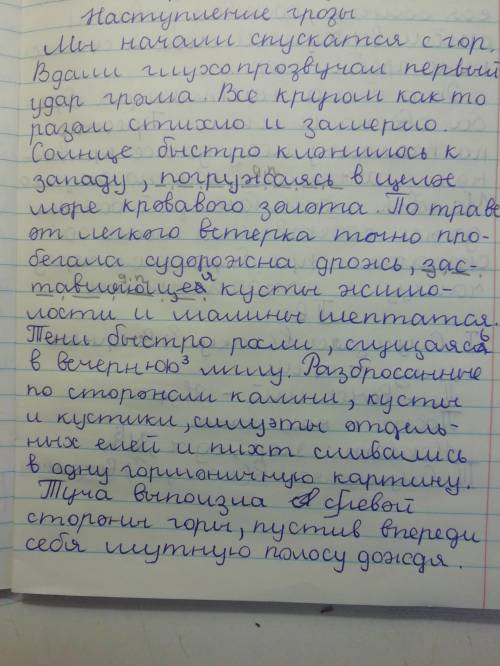 Наступление грозы
Мы начали спускатся с гор.
Вдали глухо прозвучал первый
удар грома. Все кругом как то
разом стихло и замерло.
Солнце быстро клонилось к
западу, погружаясь в целое
море кровавого золота. По траве
от легкого ветерка точно про-
бегала судорожна дрожь, зас-
тавляющея кусты жимо-
лости и малины шептатся.
Тени быстро росли, сгущаясь
в вечернюю мглу. Разбросанные
по сторонам камни, кусты
и кустики, силуэты отдель-
ных елей и пихт сливались
в одну гормоничную картину.
Туча выползла с левой
стороны горы, пустив впереди
себя мутную полосу дождя.